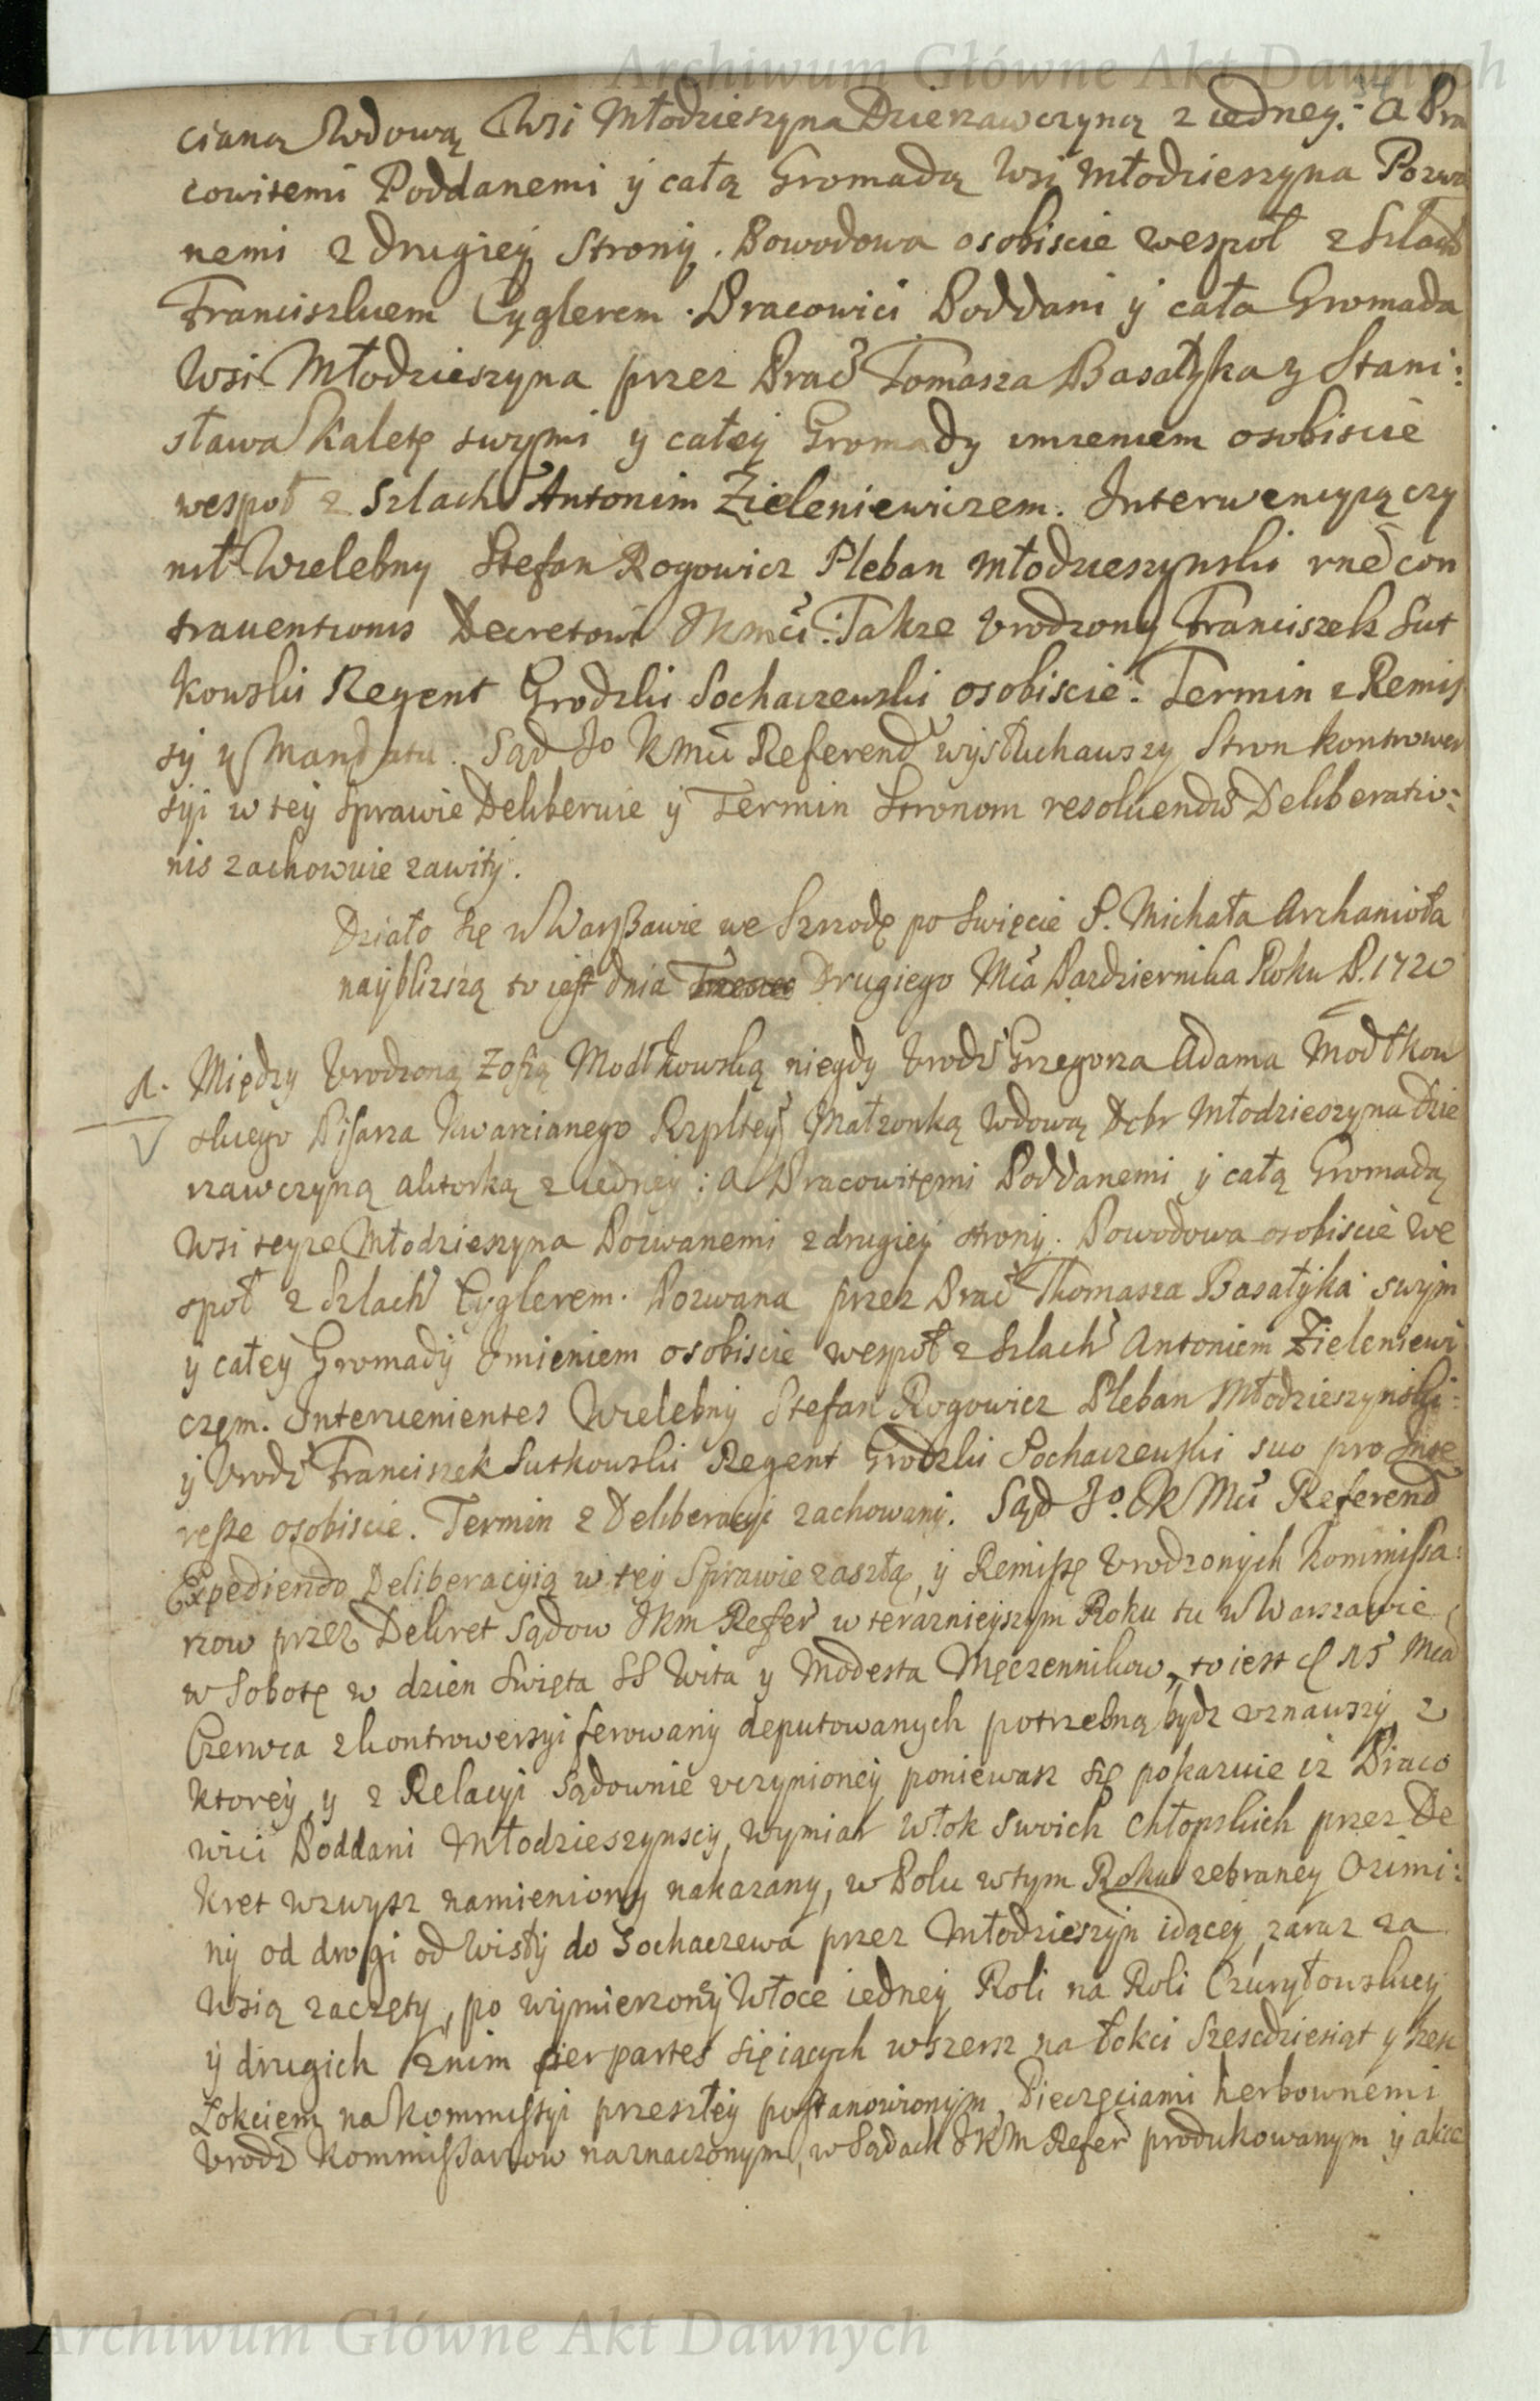 Archiwum Główne Akt Dawnych
ciana Wdową Wsi Młodzieszyna Dzierzawczyną z iedney: a Pra
cowitemi Poddanemi ÿ całą Gromadą Wsi Młodzieszyna Pozwa
nemi z drugieÿ Stronÿ. Powodowa osobiscie wespoł z Szlach
Franciszkiem Cyglerem. Pracowici Poddani ÿ cała Gromada
Wsi Młodzieszyna przez Prac Tomasza Basałÿka y Stani:
sława Kaletę swymi y całeÿ Gromady imieniem osobiscie
wespoł z Szlach Antonim Zieleniewiczem. Interwencyią czy
nił Wielebny Stefan Rogowicz Pleban Młodzieszynski rñe con
trauentionis Decretowi JKmći: Takze Vrodzony Franciszek Sut
kowski Regent Grodzki Sochaczewski osobiscie. Termin z Remis
sÿ y Mandatu. Sąd Jo Kmći Referend wÿsłuchawszy Stron kontrower
sÿi w teÿ sprawie Deliberuie ÿ Termin Stronom resoluendæ Deliberatio:
nis zachowuie zawitÿ.
Działo się w Warszawie we Szrzodę po Swięcie S. Michała Archanioła
naÿblizszą to iest dnia Drugiego Mca Pazdziernika Roku P. 1720
1. Między Vrodzoną Zofią Modłkowską niegdy Vrodz Grzegorza Adama Modłkow
skiego Pisarza Kwarcianego Rzpltey Małzonką Wdową Dobr Młodzieszyna Dzie
rzawczyną aktorką z iedneÿ: a Pracowitemi Poddanemi ÿ całą Gromadą
Wsi teyze Młodzieszyna Pozwanemi z drugieÿ stronÿ. Powodowa osobiscie we
społ z Szlach Cyglerem. Pozwana przez Prac Thomasza Basałÿka swÿm
y całey Gromadÿ Imieniem osobiscie wespoł z Szlach Antoniem Zieleniewi
czem. Interuenientes Wielebnÿ Stefan Rogowicz Pleban Młodzieszynski:
ÿ Vrodz Franciszek Sutkowski Regent Grodzki Sochaczewski suo pro Inte
resse osobiscie. Termin z Deliberacyi zachowanÿ. Sąd Jo. K Mći Referend
Expediendo Deliberacyią w teÿ Sprawie zaszłą, ÿ Remissę Vrodzonych Kommissa:
rzow przez Dekret Sądow JKm Refer w terazniejszym Roku tu w Warszawie
w Sobotę w dzien Swięta SS Wita y Modesta Męczennikow, to iest d 15 Mca
Czerwca z kontrowersyi ferowanÿ deputowanych potrzebną bydz uznawszÿ, z
ktoreÿ, y z Relacyi Sądownie uczynioneÿ poniewasz się pokazuie iz Praco
wici Poddani Młodzieszynscÿ, wymiar Włok swoich Chłopskich przez De
kret wzwysz namieniony nakazany, w Polu w tym Roku zebraney Ozimi:
nÿ od drogi od Wisłÿ do Sochaczewa przez Młodzieszÿn idąceÿ, zaraz za
Wsią zaczęty, po wÿmierzoneÿ Włoce iedneÿ Roli na Roli Czuryłowskieÿ
ÿ drugich z nim per partes sięiących wszersz na Łokci Szescdziesiąt y szesc
Łokciem na Kommissyi przeszłeÿ postanowionÿm, Pieczęciami herbownemi
Vrodz Kommissarzow naznaczonym, w Sądach JKM Refer produkowanym ÿ akce
Archiwum Główne Akt Dawnych